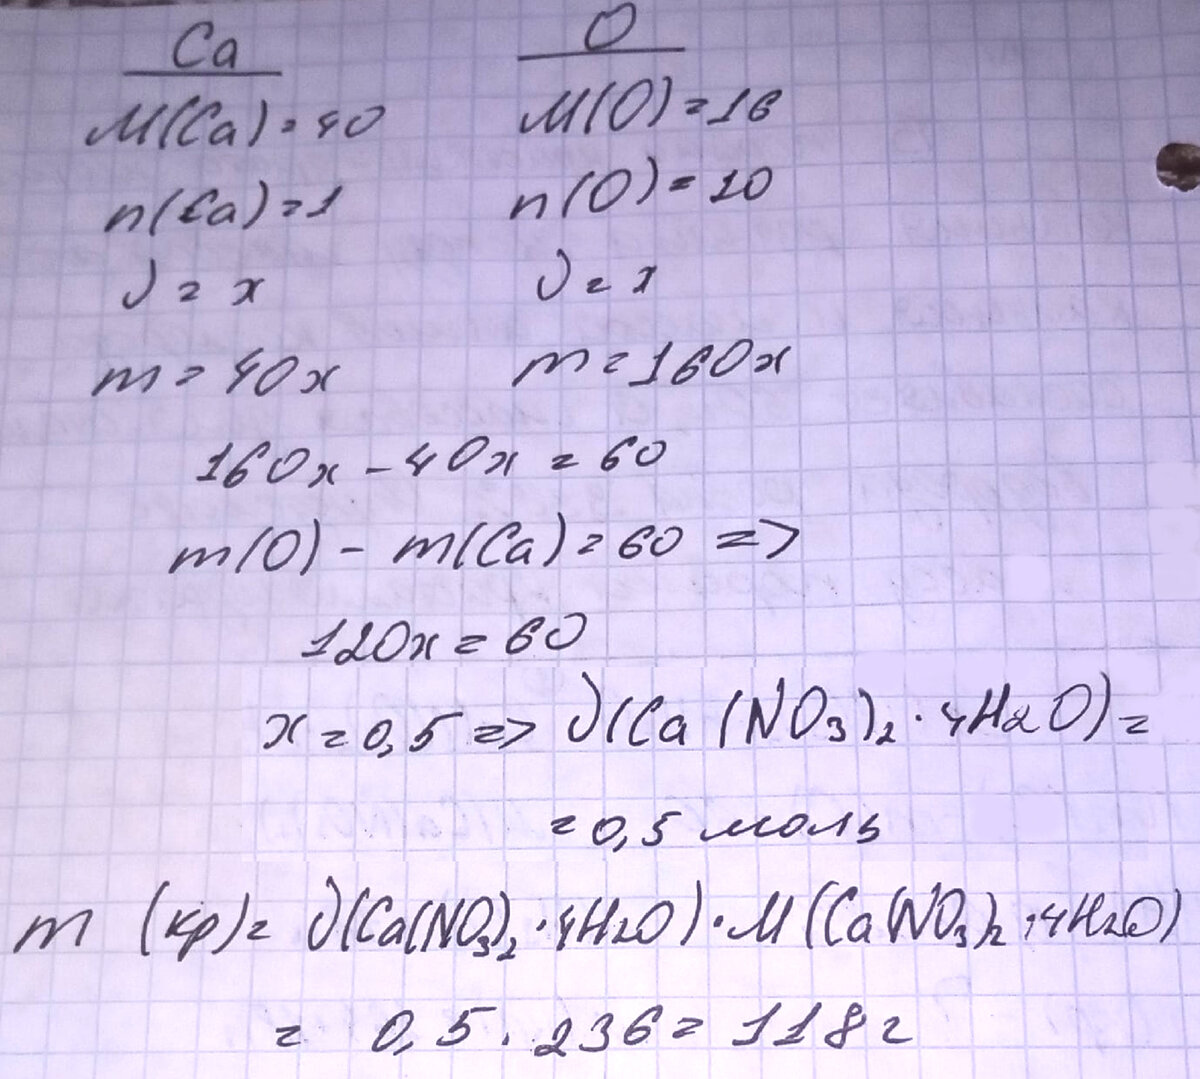 Ca O
M(Ca) = 40 M(O) = 16
n(Ca) = 1 n(O) = 10
ν = x ν = x
m = 40x m = 160x
160x - 40x = 60
m(O) - m(Ca) = 60 =>
120x = 60
x = 0,5 => ν(Ca(NO₃)₂·4H₂O) =
= 0,5 моль
m (кр) = ν(Ca(NO₃)₂·4H₂O)·M(Ca(NO₃)₂·4H₂O)
= 0,5 · 236 = 118 г